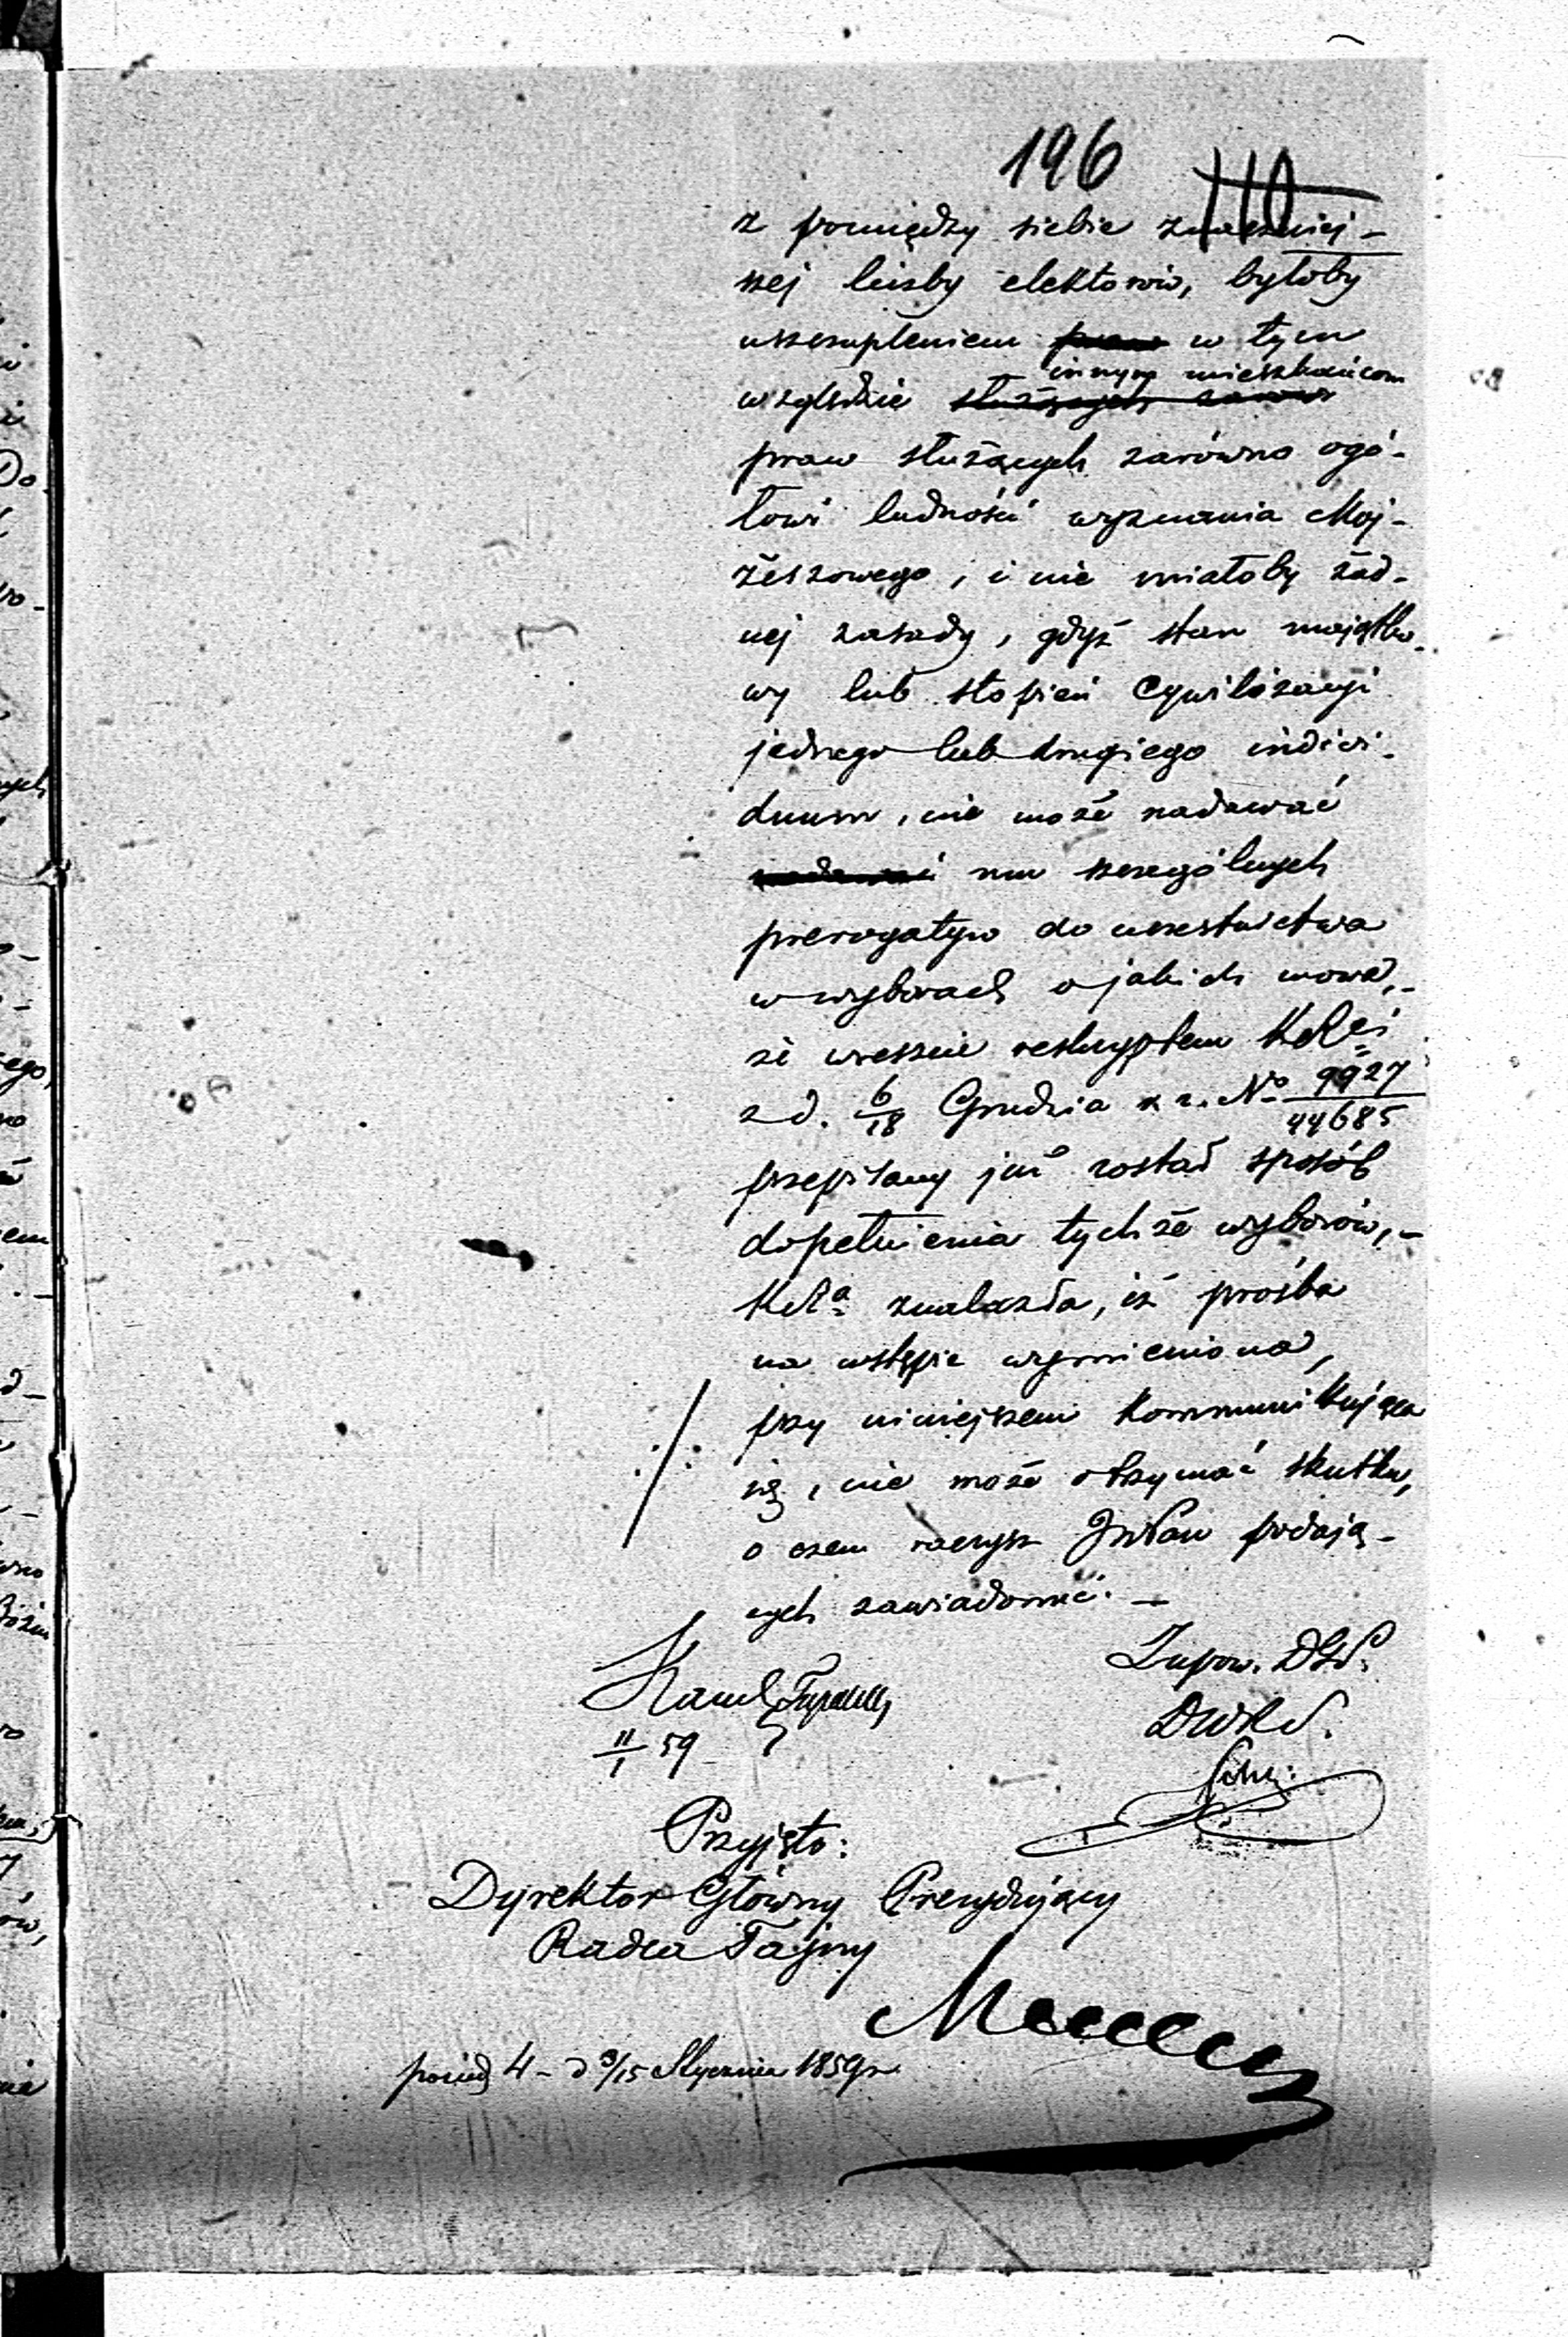 196
z pomiędzy siebie znaczniej-
szej liczby elektorów, byłoby
uszczupleniem praw w tym
innym mieszkańcom
względzie służących zarów
praw służących zarówno ogó-
łowi ludności wyznania Moj-
żeszowego, i nie miałoby żad-
nej zasady, gdyż stan majątko-
wy lub stopień Cywilizacyi
jednego lub drugiego indivi-
duum, nie może nadawać
nadawać mu szczególnych
prerogatyw do uczestnictwa
w wyborach o jakich mowa,-
że wreszcie reskryptem KRei
z d. 6/18 Grudnia z. r. No 9927/44685
przepisany już został sposób
dopełnienia tychże wyborów,-
KRa znalazła, iż prośba
na wstępie wymieniona,
./. przy niniejszem kommunikująca
się, nie może otrzymać skutku,
o czem raczysz JWPan podają-
cych zawiadomić. —
Zupow. DGP.
Karol
DWRS.
11/1 59
Przyjęto:
Dyrektor Główny Prezydujący
Radca Tajny
posied 4 - d 3/15 Stycznia 1859 r